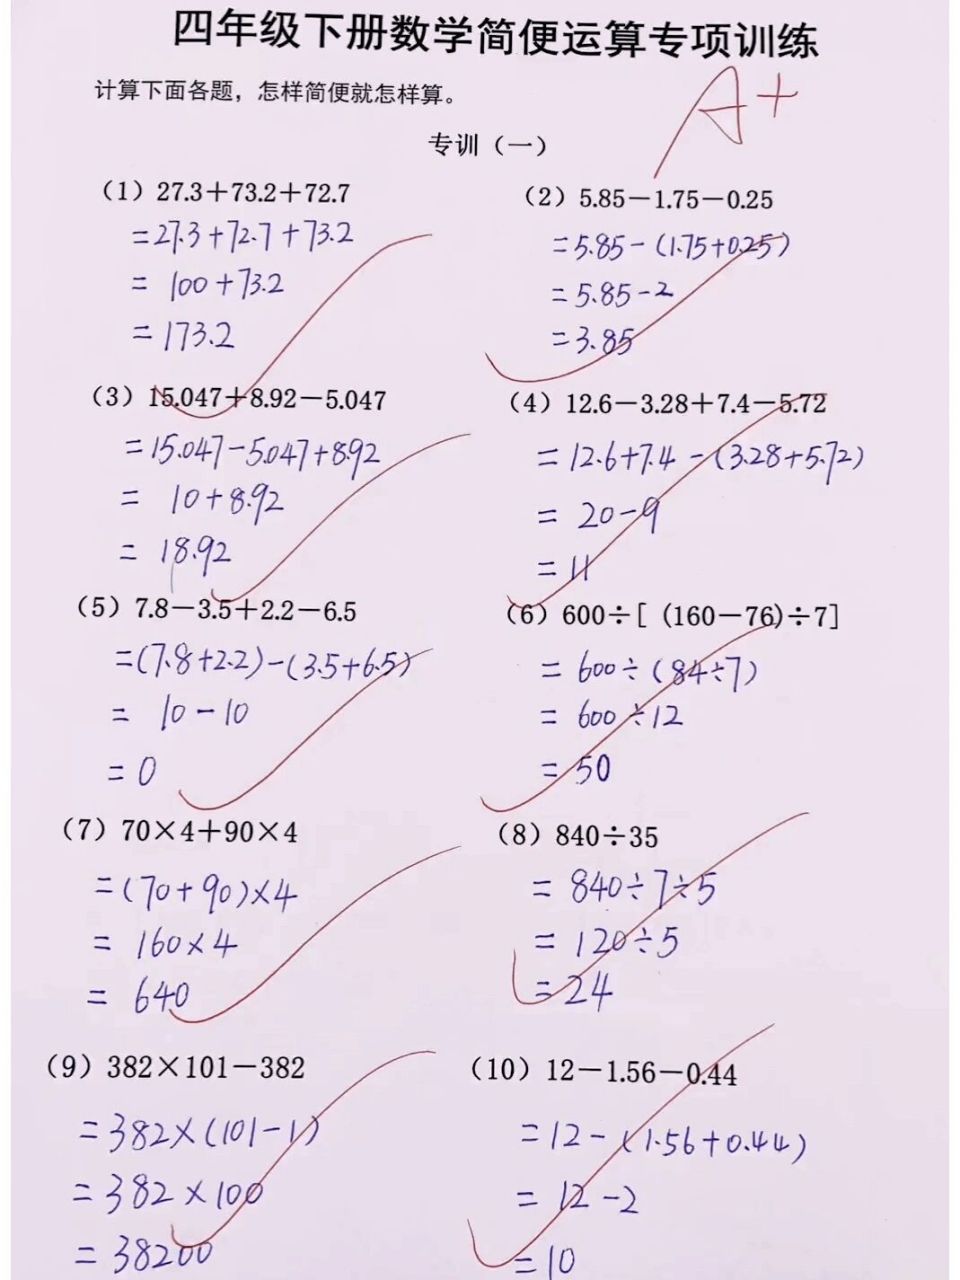 四年级下册数学简便运算专项训练
计算下面各题，怎样简便就怎样算。
A+
专训（一）
（1）27.3＋73.2＋72.7
=27.3+72.7+73.2
= 100+73.2
=173.2
（2）5.85－1.75－0.25
=5.85-(1.75+0.25)
=5.85-2
=3.85
（3）15.047＋8.92－5.047
=15.047-5.047+8.92
= 10+8.92
= 18.92
（4）12.6－3.28＋7.4－5.72
=12.6+7.4-(3.28+5.72)
= 20-9
=11
（5）7.8－3.5＋2.2－6.5
=(7.8+2.2)-(3.5+6.5)
= 10-10
=0
（6）600÷[（160－76)÷7]
= 600÷(84÷7)
= 600÷12
= 50
（7）70×4＋90×4
=(70+90)×4
= 160×4
= 640
（8）840÷35
= 840÷7÷5
= 120÷5
=24
（9）382×101－382
=382×(101-1)
=382×100
= 38200
（10）12－1.56－0.44
=12-(1.56+0.44)
= 12-2
=10